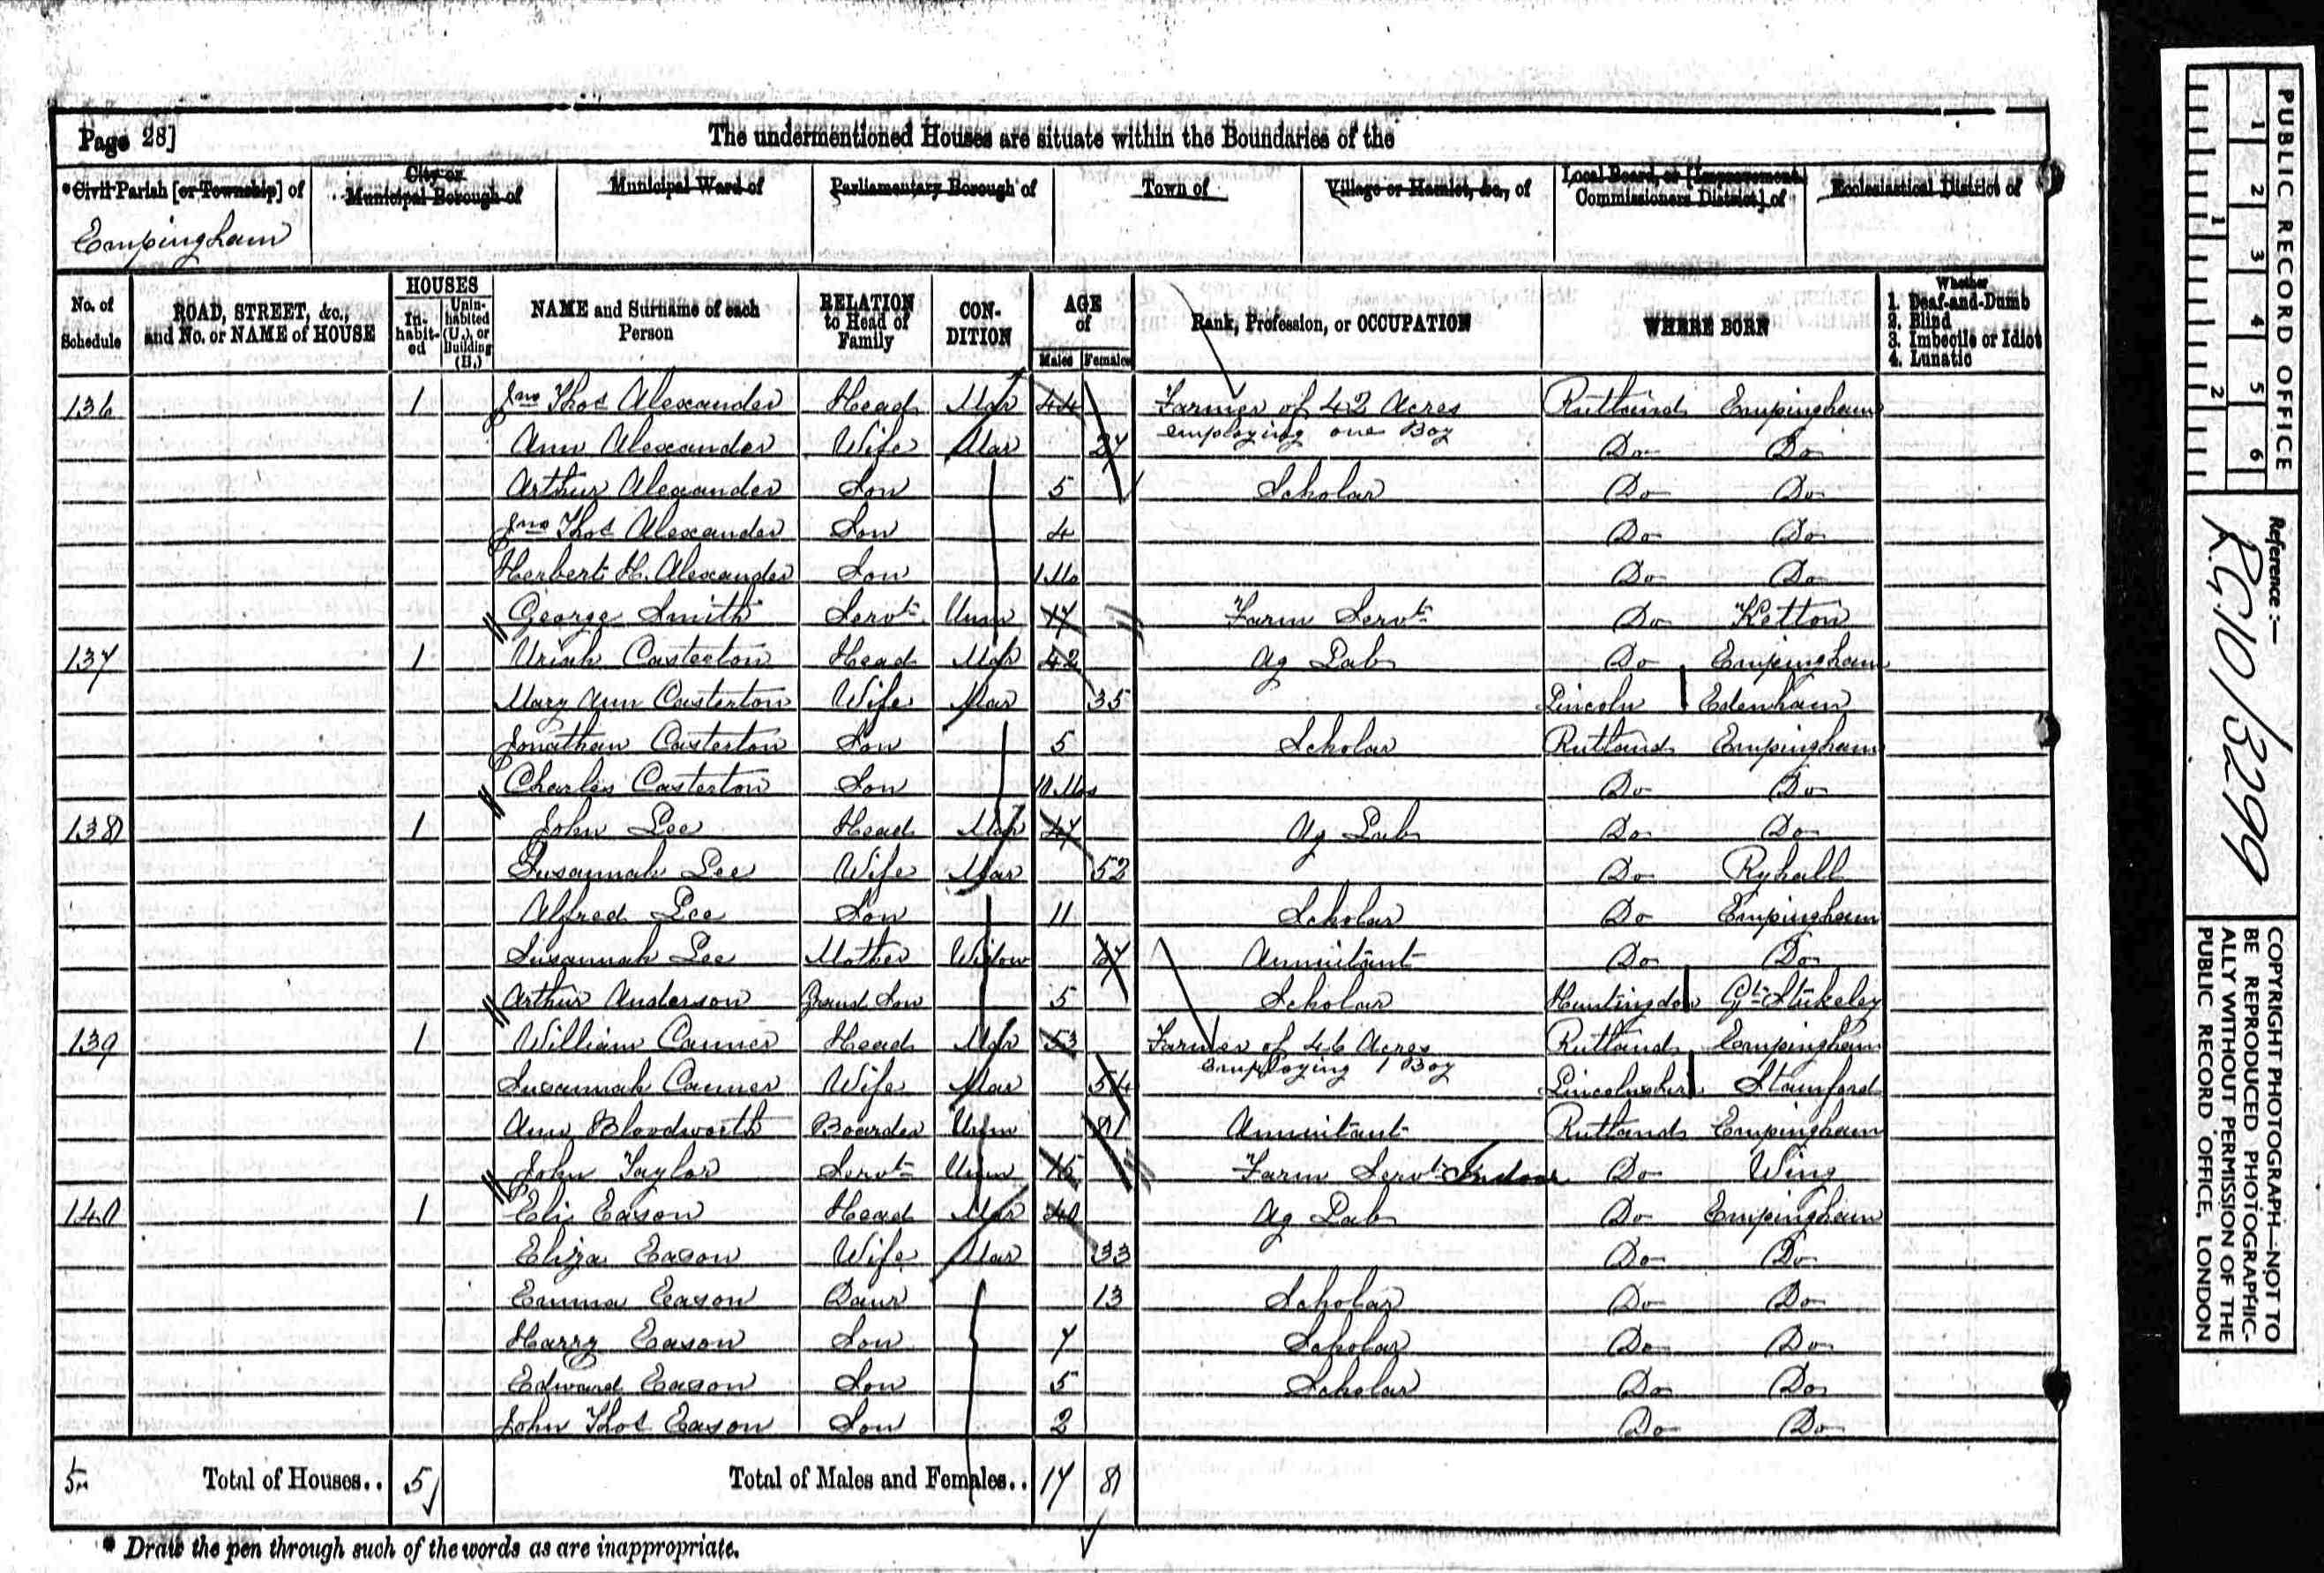 Page 28]
The undermentioned Houses are situate within the Boundaries of the
*Civil Parish [or Township] of
City or
Municipal Borough of
Municipal Ward of
Parliamentary Borough of
Town of
Village or Hamlet, &c., of
Local Board, or [Improvement
Commissioners District] of
Ecclesiastical District of
Empingham
No. of
Schedule
ROAD, STREET, &c.,
and No. or NAME of HOUSE
HOUSES
In-
habit-
ed
Unin-
habited
(U.), or
Building
(B.)
NAME and Surname of each
Person
RELATION
to Head of
Family
CON-
DITION
AGE
of
Males Females
Rank, Profession, or OCCUPATION
WHERE BORN
Whether
1. Deaf-and-Dumb
2. Blind
3. Imbecile or Idiot
4. Lunatic
136 1 Jno Thos Alexander Head Mar 44 Farmer of 42 Acres Rutland Empingham
employing one Boy
Ann Alexander Wife Mar 27 Do Do
Arthur Alexander Son 5 Scholar Do Do
Jno Thos Alexander Son 4 Do Do
Herbert H. Alexander Son 1 Mo Do Do
George Smith Servt Unm 17 Farm Servt Do Ketton
137 1 Uriah Casterton Head Mar 42 Ag Lab Do Empingham
Mary Ann Casterton Wife Mar 35 Lincoln Edenham
Jonathan Casterton Son 5 Scholar Rutland Empingham
Charles Casterton Son 10 Mos Do Do
138 1 John Lee Head Mar 47 Ag Lab Do Do
Susannah Lee Wife Mar 52 Do Ryhall
Alfred Lee Son 11 Scholar Do Empingham
Susannah Lee Mother Widow 67 Annuitant Do Do
Arthur Anderson Grand Son 5 Scholar Huntingdon Gt Stukeley
139 1 William Canner Head Mar 53 Farmer of 46 Acres Rutland Empingham
Employing 1 Boy
Susannah Canner Wife Mar 54 Lincolnshire Stamford
Ann Bloodworth Boarder Unm 81 Annuitant Rutland Empingham
John Taylor Servt Unm 16 Farm Servt Indoor Do Wing
140 1 Eli Eason Head Mar 40 Ag Lab Do Empingham
Eliza Eason Wife Mar 33 Do Do
Emma Eason Daur 13 Scholar Do Do
Harry Eason Son 7 Scholar Do Do
Edward Eason Son 5 Scholar Do Do
John Thos Eason Son 2 Do Do
5 Total of Houses.. 5 Total of Males and Females.. 17 8
* Draw the pen through such of the words as are inappropriate.
PUBLIC RECORD OFFICE
1 2 3 4 5 6
1 2
Reference :—
RG 10/3299
COPYRIGHT PHOTOGRAPH—NOT TO
BE REPRODUCED PHOTOGRAPHIC-
ALLY WITHOUT PERMISSION OF THE
PUBLIC RECORD OFFICE, LONDON